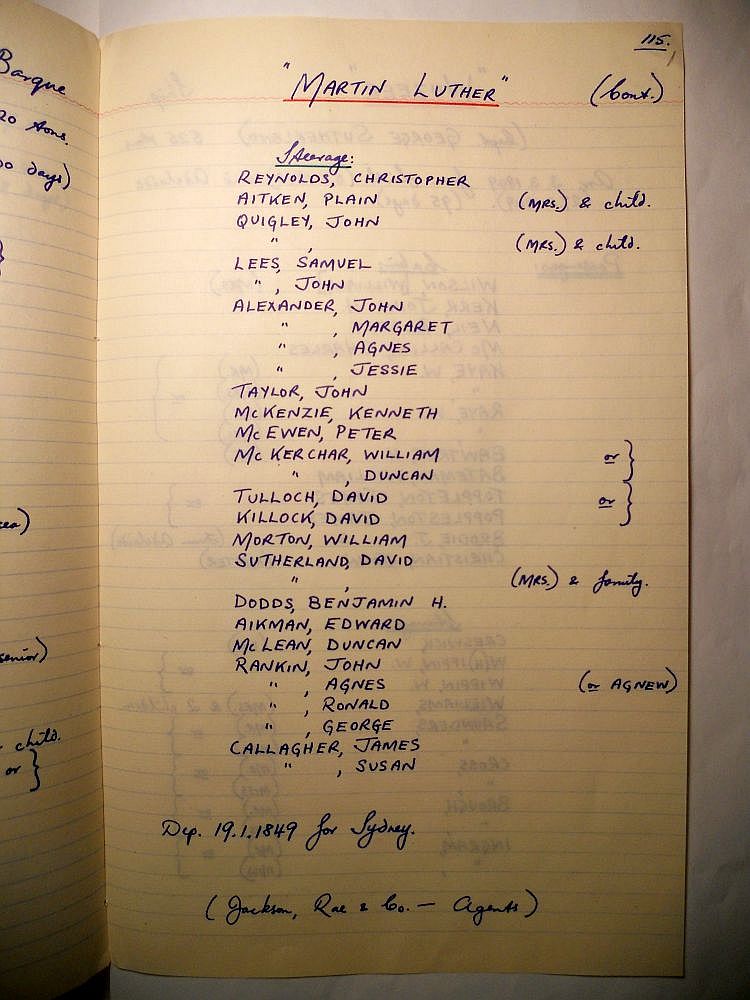 Barque
115.
"MARTIN LUTHER" (Cont.)
20 tons.
days)
Steerage:
REYNOLDS, CHRISTOPHER
AITKEN, PLAIN (MRS.) & child.
QUIGLEY, JOHN
" , (MRS.) & child.
LEES, SAMUEL
" , JOHN
ALEXANDER, JOHN
" , MARGARET
" , AGNES
" , JESSIE
TAYLOR, JOHN
McKENZIE, KENNETH
McEWEN, PETER
McKERCHAR, WILLIAM or }
" , DUNCAN
TULLOCH, DAVID or }
KILLOCK, DAVID
MORTON, WILLIAM
SUTHERLAND, DAVID
" , (MRS.) & family.
DODDS, BENJAMIN H.
AIKMAN, EDWARD
McLEAN, DUNCAN
senior)
RANKIN, JOHN
" , AGNES (or AGNEW)
" , RONALD
" , GEORGE
child.
CALLAGHER, JAMES
or }
" , SUSAN
Dep. 19.1.1849 for Sydney.
(Jackson, Rae & Co. — Agents)